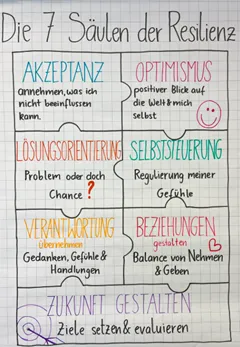 Die 7 Säulen der Resilienz
AKZEPTANZ
annehmen, was ich
nicht beeinflussen
kann.
OPTIMISMUS
positiver Blick auf
die Welt & mich
selbst
LÖSUNGSORIENTIERUNG
Problem oder doch
Chance ?
SELBSTSTEUERUNG
Regulierung meiner
Gefühle
VERANTWORTUNG
übernehmen
Gedanken, Gefühle &
Handlungen
BEZIEHUNGEN
gestalten
Balance von Nehmen
& Geben
ZUKUNFT GESTALTEN
Ziele setzen & evaluieren